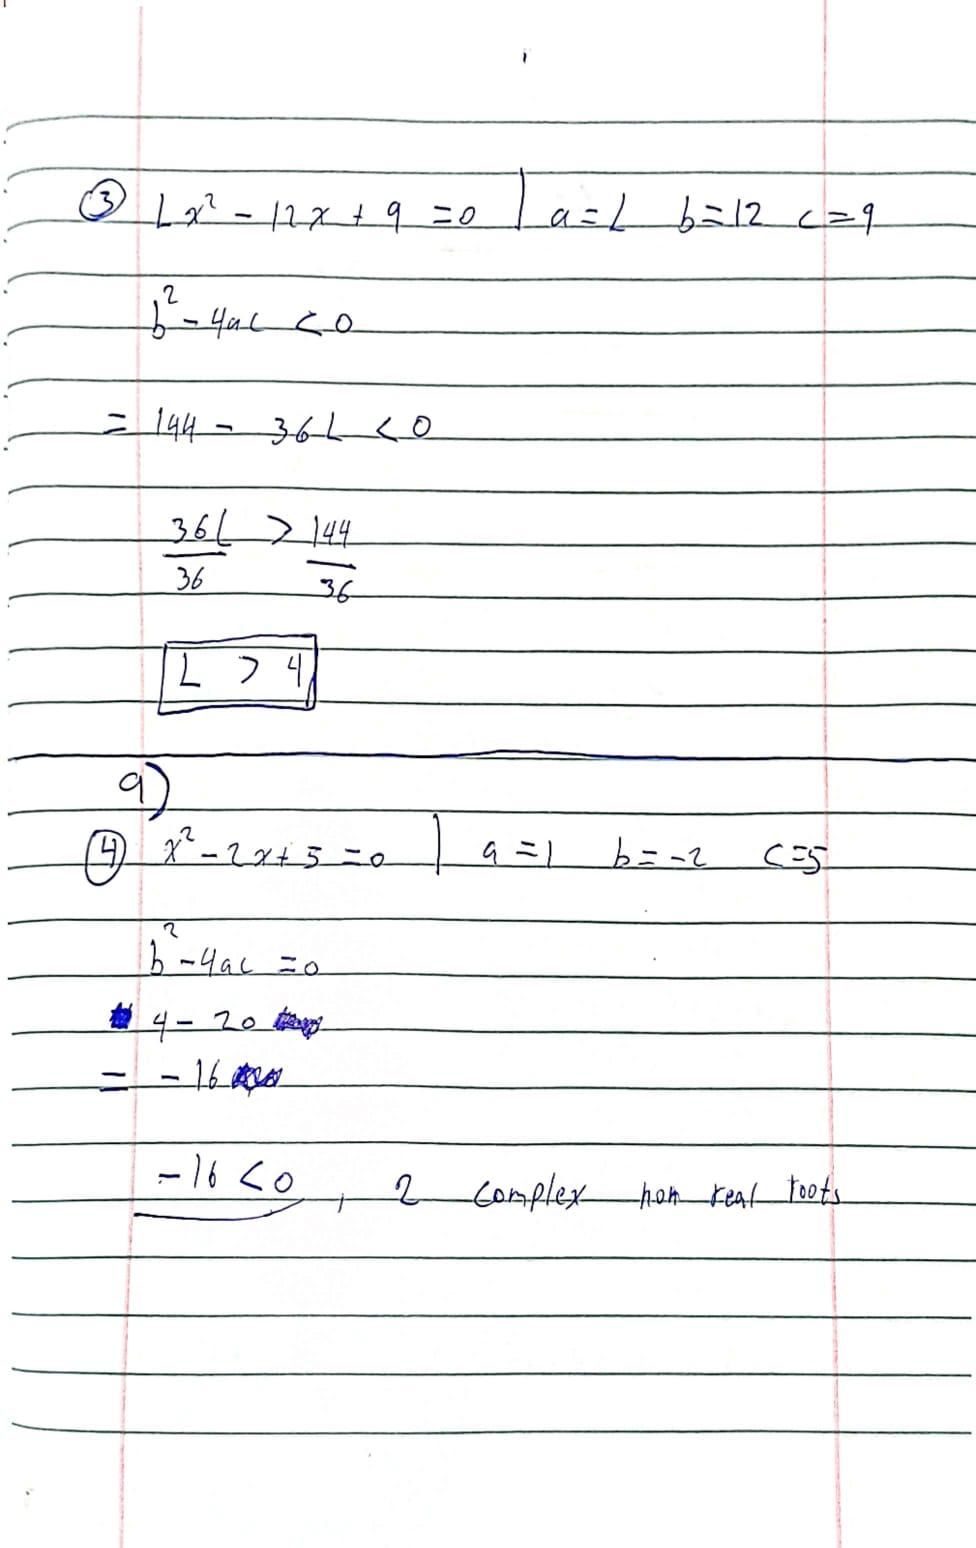 ③ Lx² - 12x + 9 = 0 | a = L b = 12 c = 9
b² - 4ac < 0
= 144 - 36L < 0
36L/36 > 144/36
L > 4
a)
④ x² - 2x + 5 = 0 | a = 1 b = -2 c = 5
b² - 4ac = 0
4 - 20
= -16
-16 < 0, 2 complex non real roots